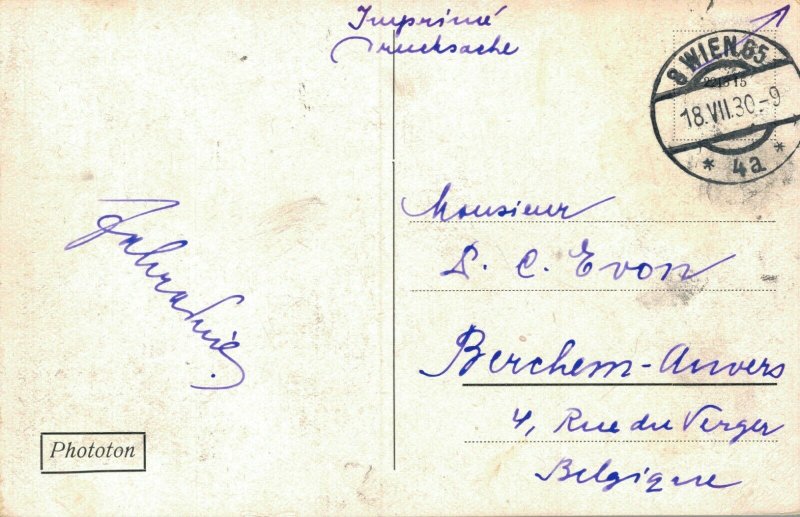 Imprimé
Drucksache
8 WIEN 65
221315
18.VII.30.-9
* 4a *
Monsieur
L. C. Evon
Berchem-Anvers
4, Rue du Verger
Belgique
Phototon